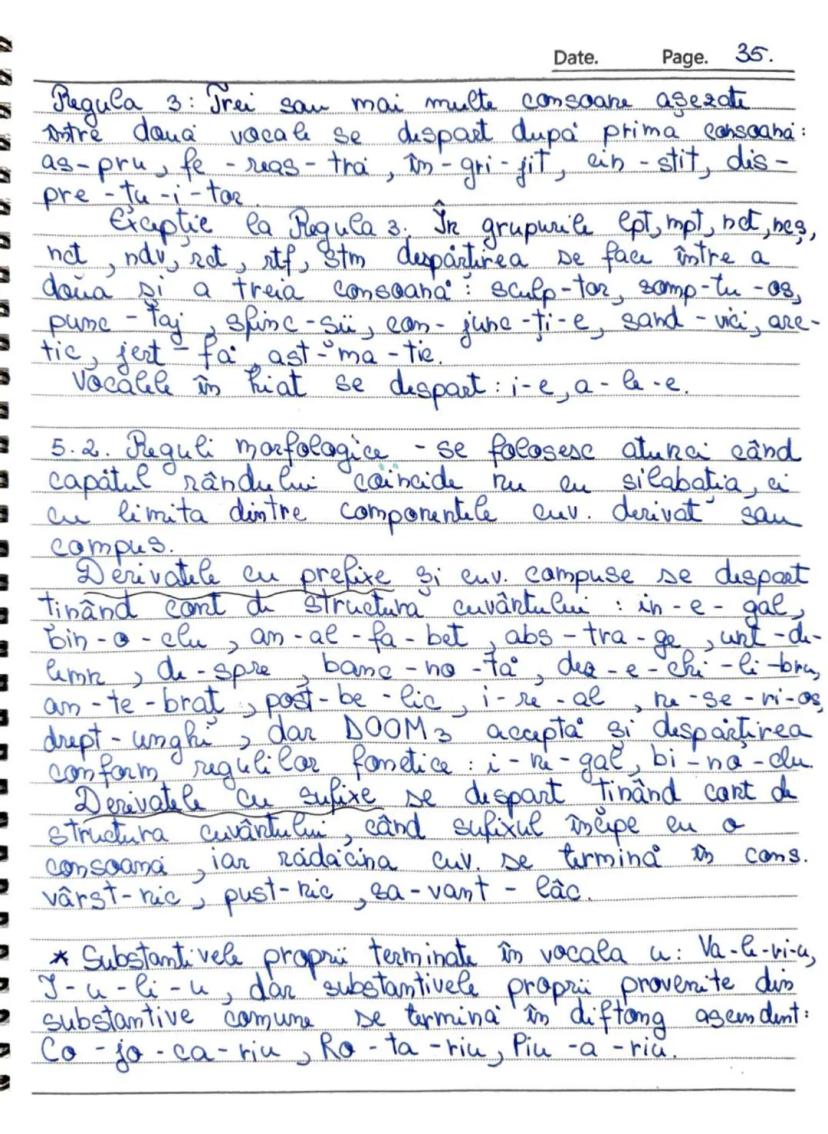 Date. Page. 35.
Regula 3: Trei sau mai multe consoane așezate
între două vocale se despart după prima consoană:
as-pru, fe-reas-tră, în-gri-jit, cin-stit, dis-
pre-tu-i-tor.
Excepție la Regula 3. În grupurile lpt, mpt, nct, ncș,
nct, ndv, rct, rtf, stm despărțirea se face între a
doua și a treia consoană: sculp-tor, somp-tu-os,
punc-taj, sfinc-șii, con-junc-ți-e, sand-vici, arc-
tic, jert-fă, ast-ma-tic.
Vocalele în hiat se despart: i-e, a-le-e.
5.2. Reguli morfologice - se folosesc atunci când
capătul rândului coincide nu cu silabația, ci
cu limita dintre componentele cuv. derivat sau
compus.
Derivatele cu prefixe și cuv. compuse se despart
ținând cont de structura cuvântului: in-e-gal,
bin-o-clu, an-al-fa-bet, abs-tra-ge, unt-de-
lemn, de-spre, banc-no-tă, dez-e-chi-li-bru,
an-te-braț, post-be-lic, i-re-al, ne-se-ri-os,
drept-unghi, dar DOOM3 acceptă și despărțirea
conform regulilor fonetice: i-ne-gal, bi-no-clu.
Derivatele cu sufixe se despart ținând cont de
structura cuvântului, când sufixul începe cu o
consoană, iar rădăcina cuv. se termină în cons.
vârst-nic, pust-nic, sa-vant-lâc.
* Substantivele proprii terminate în vocala u: Va-le-ri-u,
I-u-li-u, dar substantivele proprii provenite din
substantive comune se termină în diftong ascendent:
Co-jo-ca-riu, Ro-ta-riu, Piu-a-riu.